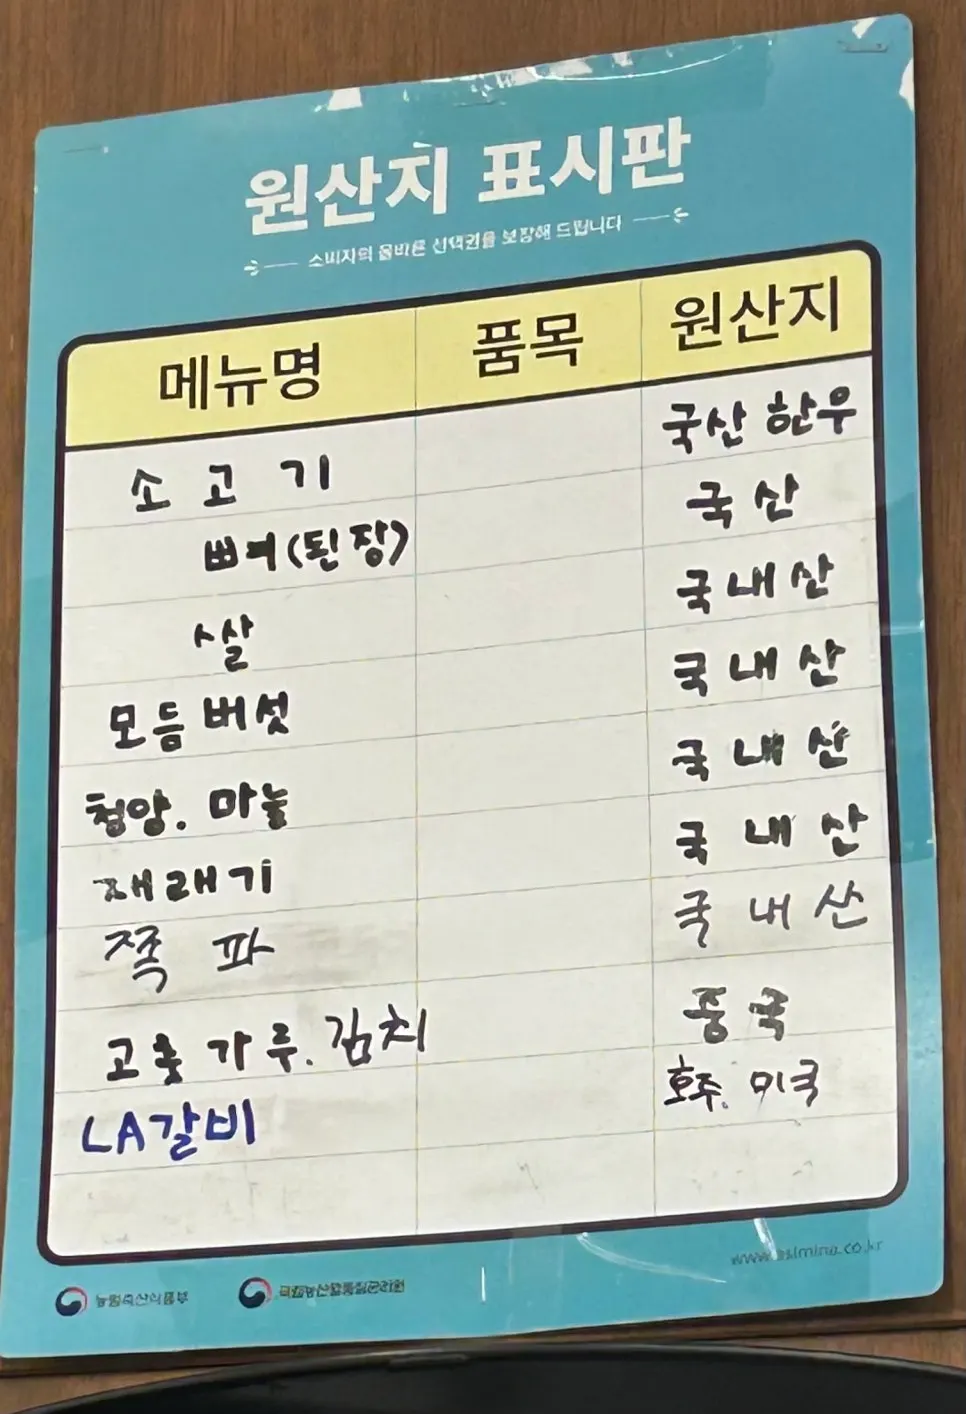 원산지 표시판
소비자의 올바른 선택권을 보장해 드립니다
메뉴명 품목 원산지
소고기 국산 한우
뼈(된장) 국산
쌀 국내산
모듬버섯 국내산
청양. 마늘 국내산
재래기 국내산
쪽파 국내산
고춧가루. 김치 중국
LA갈비 호주. 미국
농림축산식품부 국립농산물품질관리원